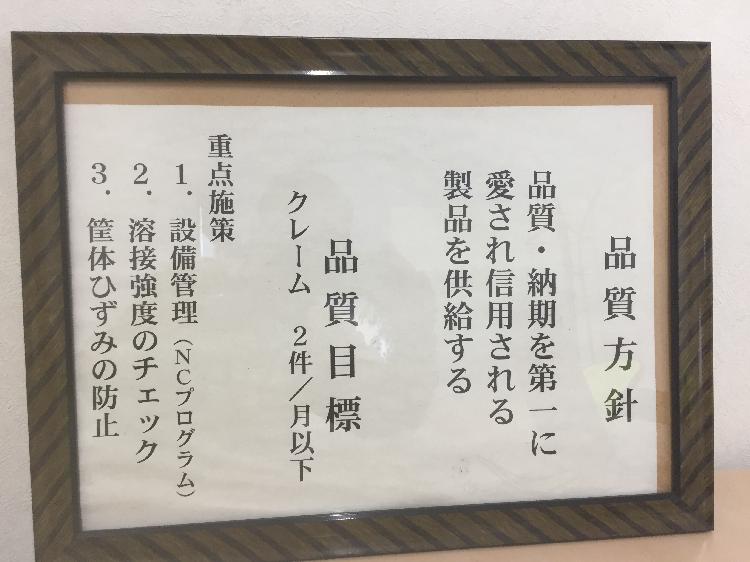 品質方針
品質・納期を第一に
愛され信用される
製品を供給する
品質目標
クレーム 2件／月以下
重点施策
1．設備管理（NCプログラム）
2．溶接強度のチェック
3．筐体ひずみの防止